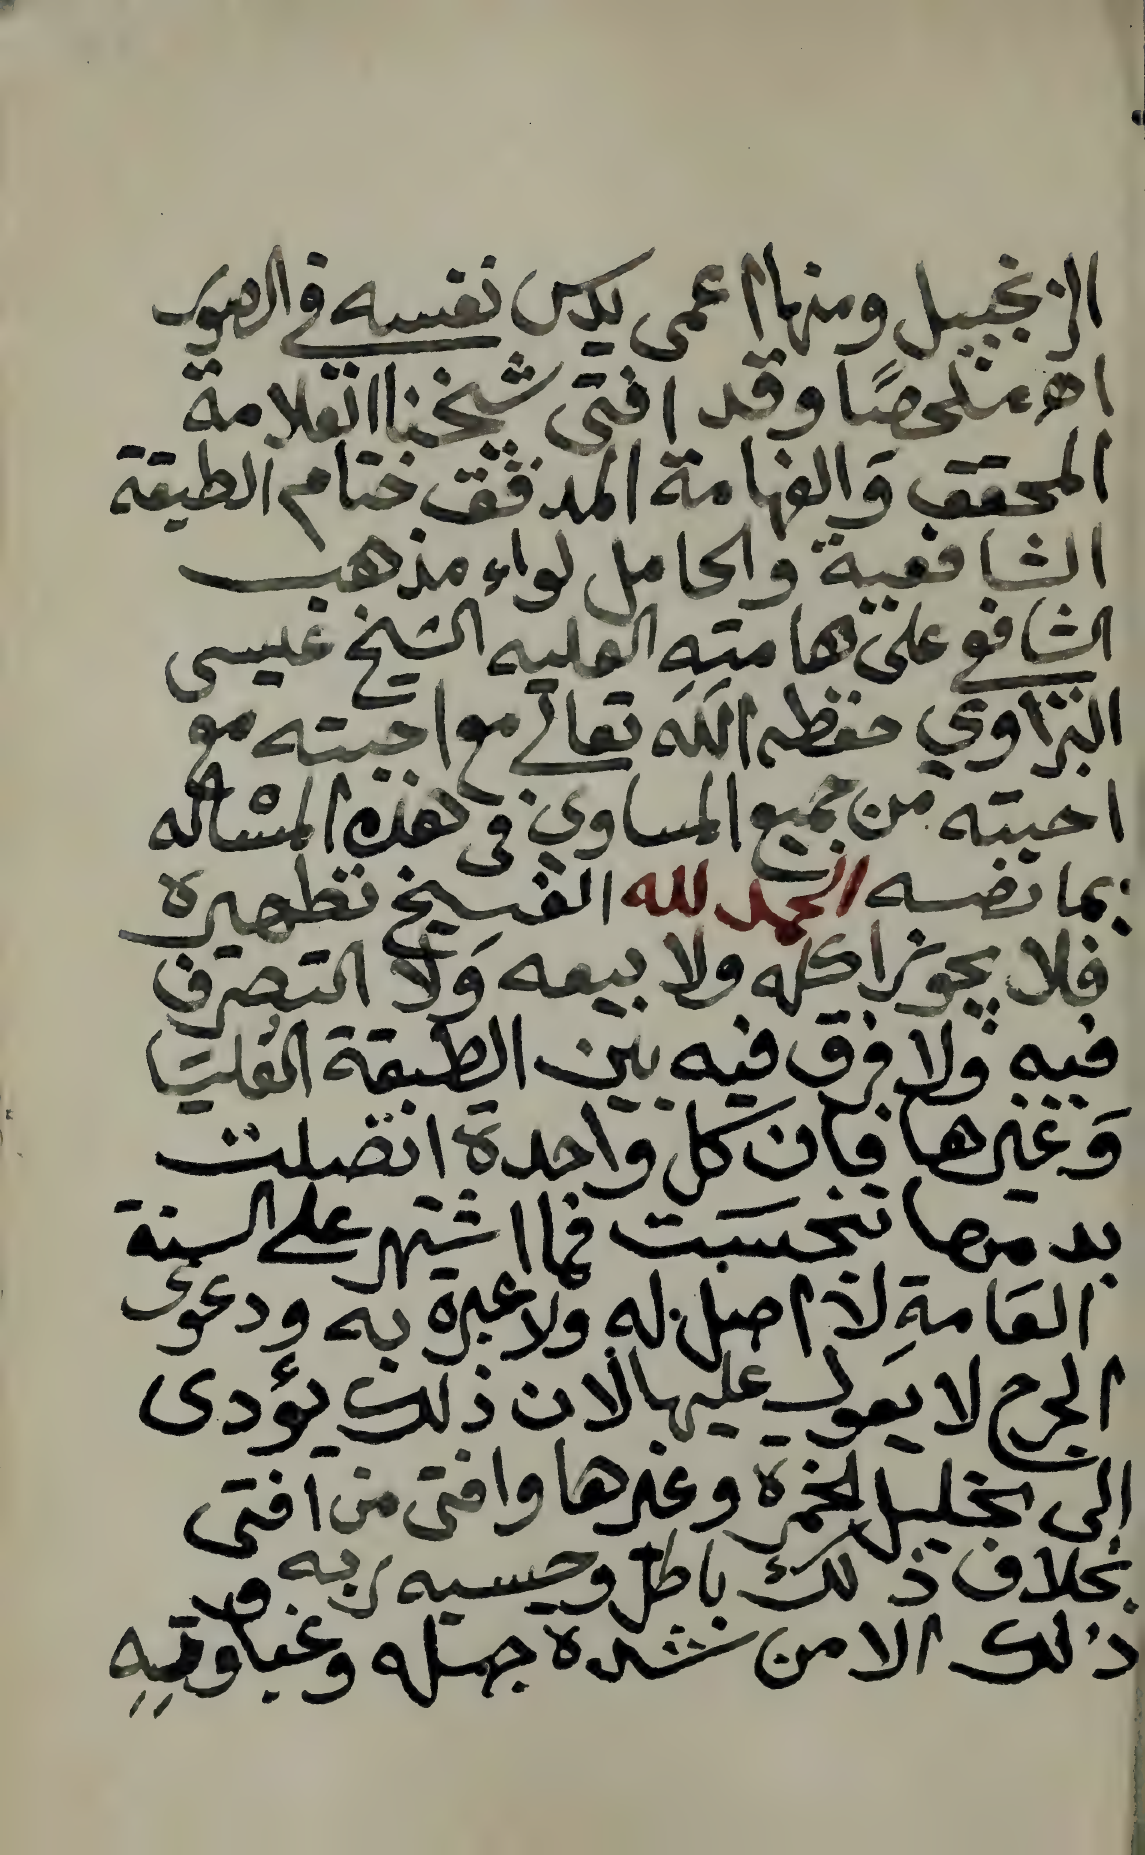 الزنجبيل ومنها اعمى يدس نفسه في الصور
اه ملخصًا وقد افتى شيخنا العلامة
المحقق والفهامة المدقق ختام الطبقة
الشافعية والحامل لواء مذهب
الشافعي على هامته العليه الشيخ عيسى
البراوي حفظه الله تعالى مع احبته مع
احبته من جميع المساوي في هذه المسأله
بما نصه الحمد لله الفسيخ تطهيره
فلا يجوز اكله ولا بيعه ولا التصرف
فيه ولا فرق فيه بين الطبقة العليا
وغيرها فان كل واحدة اتصلت
بدمها تنجست فما اشتهر على السنة
العامة لا اصل له ولا عبرة به ودعوى
الحرج لا يعول عليها لان ذلك يؤدى
الى تخليل الخمرة وغيرها وافتى من افتى
بخلاف ذلك باطل وحسيبه ربه
ذلك الا من شدة جهله وغباوته